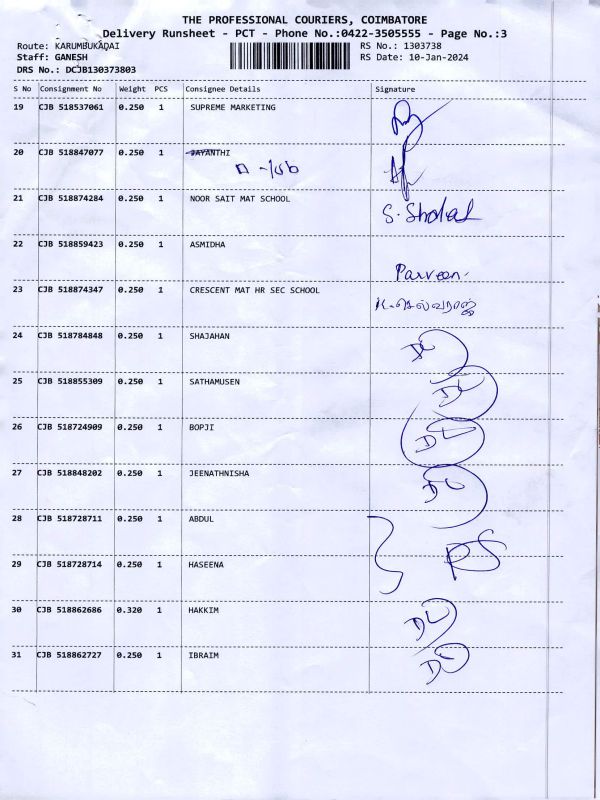 THE PROFESSIONAL COURIERS, COIMBATORE
Delivery Runsheet - PCT - Phone No.:0422-3505555 - Page No.:3
Route: KARUMBUKADAI RS No.: 1303738
Staff: GANESH RS Date: 10-Jan-2024
DRS No.: DCJB130373803
S No Consignment No Weight PCS Consignee Details Signature
19 CJB 518537061 0.250 1 SUPREME MARKETING
20 CJB 518847077 0.250 1 JAYANTHI
21 CJB 518874284 0.250 1 NOOR SAIT MAT SCHOOL
22 CJB 518859423 0.250 1 ASMIDHA
Parveen
23 CJB 518874347 0.250 1 CRESCENT MAT HR SEC SCHOOL
K.செல்வராஜ்
24 CJB 518784848 0.250 1 SHAJAHAN DL
25 CJB 518855309 0.250 1 SATHAMUSEN DL
26 CJB 518724909 0.250 1 BOPJI DL
27 CJB 518848202 0.250 1 JEENATHNISHA DL
28 CJB 518728711 0.250 1 ABDUL
RS
29 CJB 518728714 0.250 1 HASEENA
30 CJB 518862686 0.320 1 HAKKIM DL
31 CJB 518862727 0.250 1 IBRAIM DL